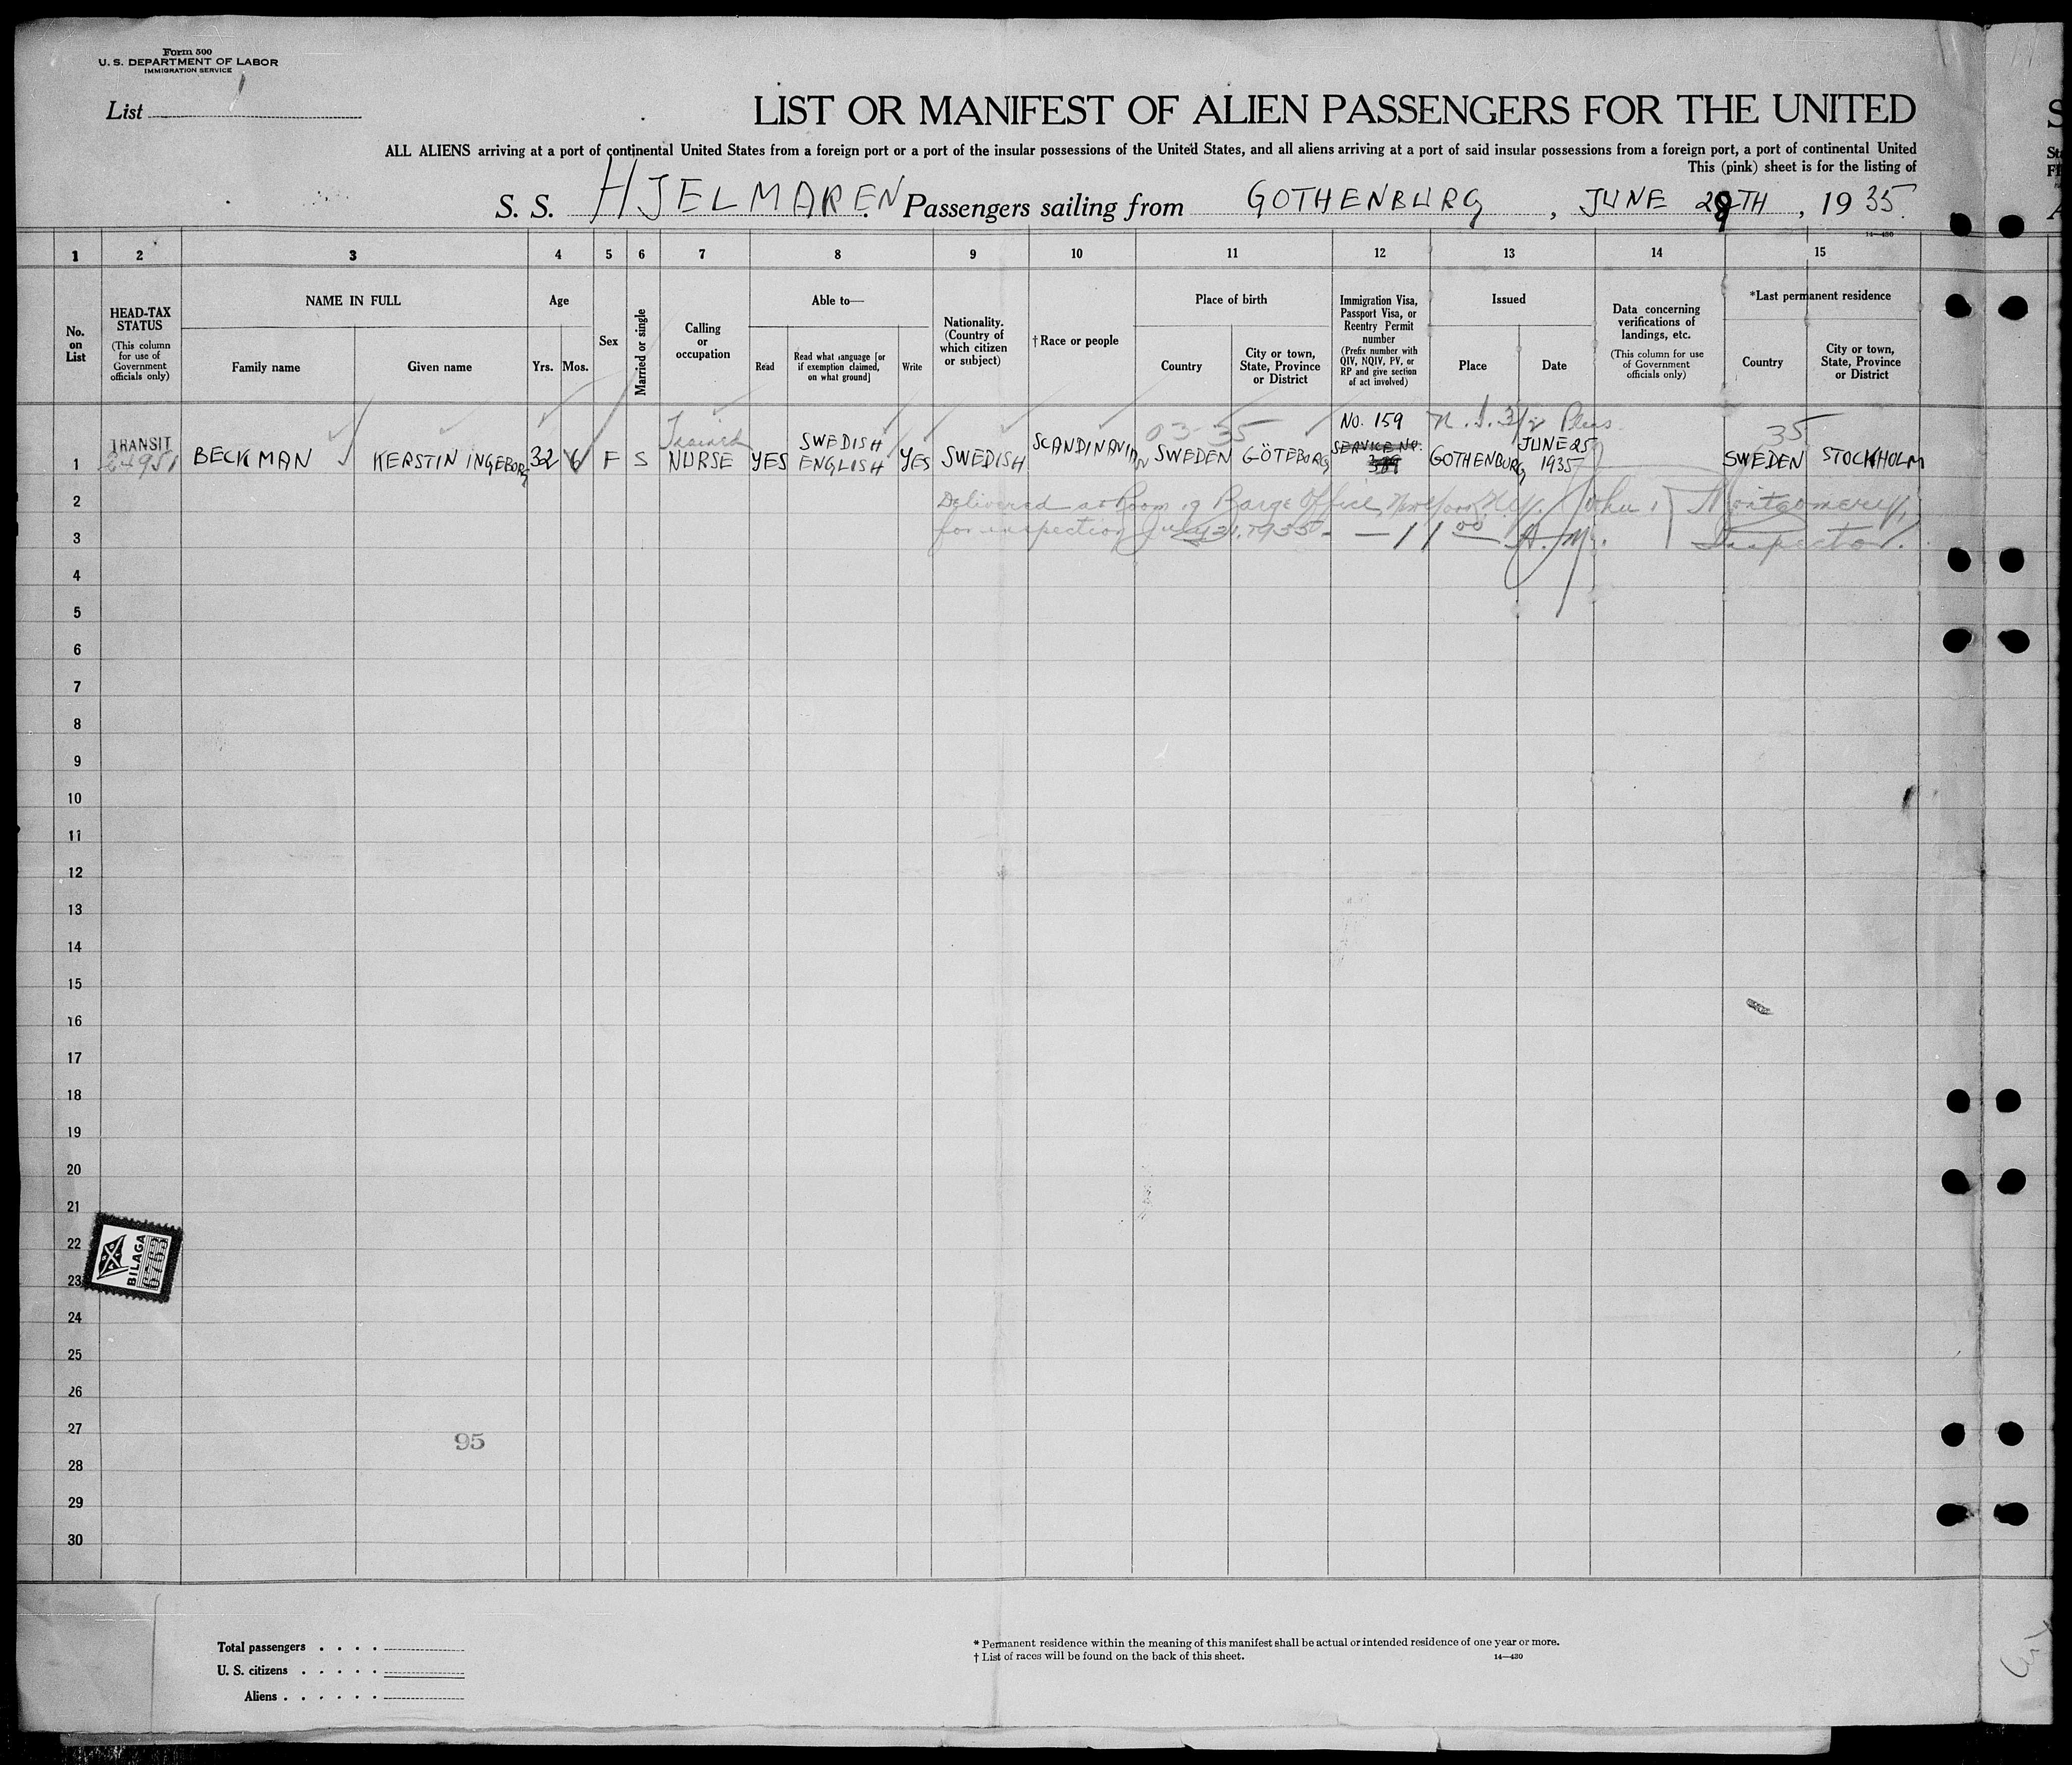 Form 500
U. S. DEPARTMENT OF LABOR
IMMIGRATION SERVICE
List 1
LIST OR MANIFEST OF ALIEN PASSENGERS FOR THE UNITED
ALL ALIENS arriving at a port of continental United States from a foreign port or a port of the insular possessions of the United States, and all aliens arriving at a port of said insular possessions from a foreign port, a port of continental United
This (pink) sheet is for the listing of
S. S. HJELMAREN Passengers sailing from GOTHENBURG, JUNE 29TH, 1935.
14—430
1 2 3 4 5 6 7 8 9 10 11 12 13 14 15
No. on List
HEAD-TAX STATUS
(This column for use of Government officials only)
NAME IN FULL
Family name
Given name
Age
Yrs.
Mos.
Sex
Married or single
Calling or occupation
Able to—
Read
Read what language [or if exemption claimed, on what ground]
Write
Nationality. (Country of which citizen or subject)
†Race or people
Place of birth
Country
City or town, State, Province or District
Immigration Visa, Passport Visa, or Reentry Permit number
(Prefix number with QIV, NQIV, PV, or RP and give section of act involved)
Issued
Place
Date
Data concerning verifications of landings, etc.
(This column for use of Government officials only)
*Last permanent residence
Country
City or town, State, Province or District
TRANSIT
Trained
SWEDISH
03-35
No. 159
35
SERVICE NO.
JUNE 25
1 BECKMAN KERSTIN INGEBORG 32 6 F S NURSE YES ENGLISH YES SWEDISH SCANDINAVIAN SWEDEN GÖTEBORG GOTHENBURG 1935 SWEDEN STOCKHOLM
2 Delivered at Room 9 Barge Office, New York, N.Y. John Montgomery,
3 for inspection July 21, 1935 — 11 00 A.M. Inspector.
4
5
6
7
8
9
10
11
12
13
14
15
16
17
18
19
20
21
22
23
BILAGA
6763
24
25
26
27
95
28
29
30
Total passengers . . . .
U. S. citizens . . . . .
Aliens . . . . . .
* Permanent residence within the meaning of this manifest shall be actual or intended residence of one year or more.
† List of races will be found on the back of this sheet.
14—430